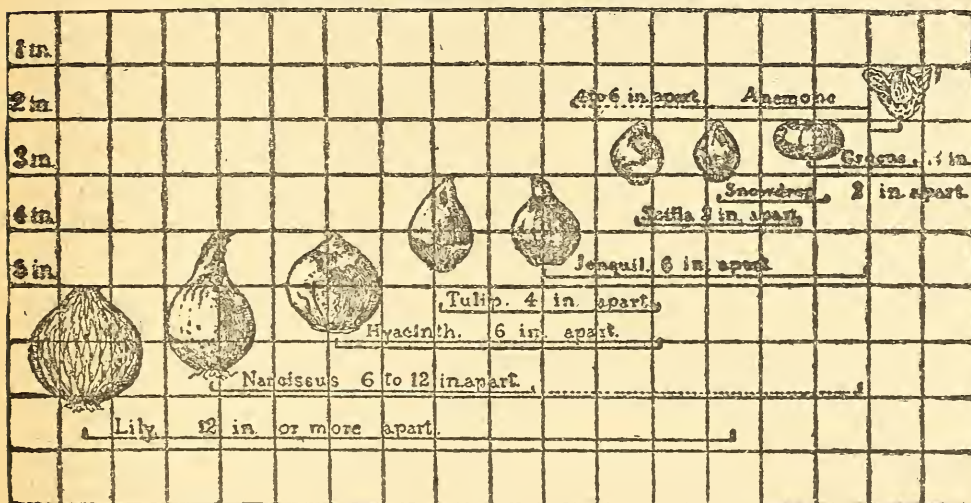 1 in.
2 in.
3 in.
4 in.
5 in.
4 to 6 in apart Anemone
Crocus in.
Snowdrop 2 in apart.
Scilla 2 in. apart
Jonquil. 6 in. apart
Tulip. 4 in. apart
Hyacinth. 6 in. apart.
Narcissus 6 to 12 in apart.
Lily. 12 in or more apart.